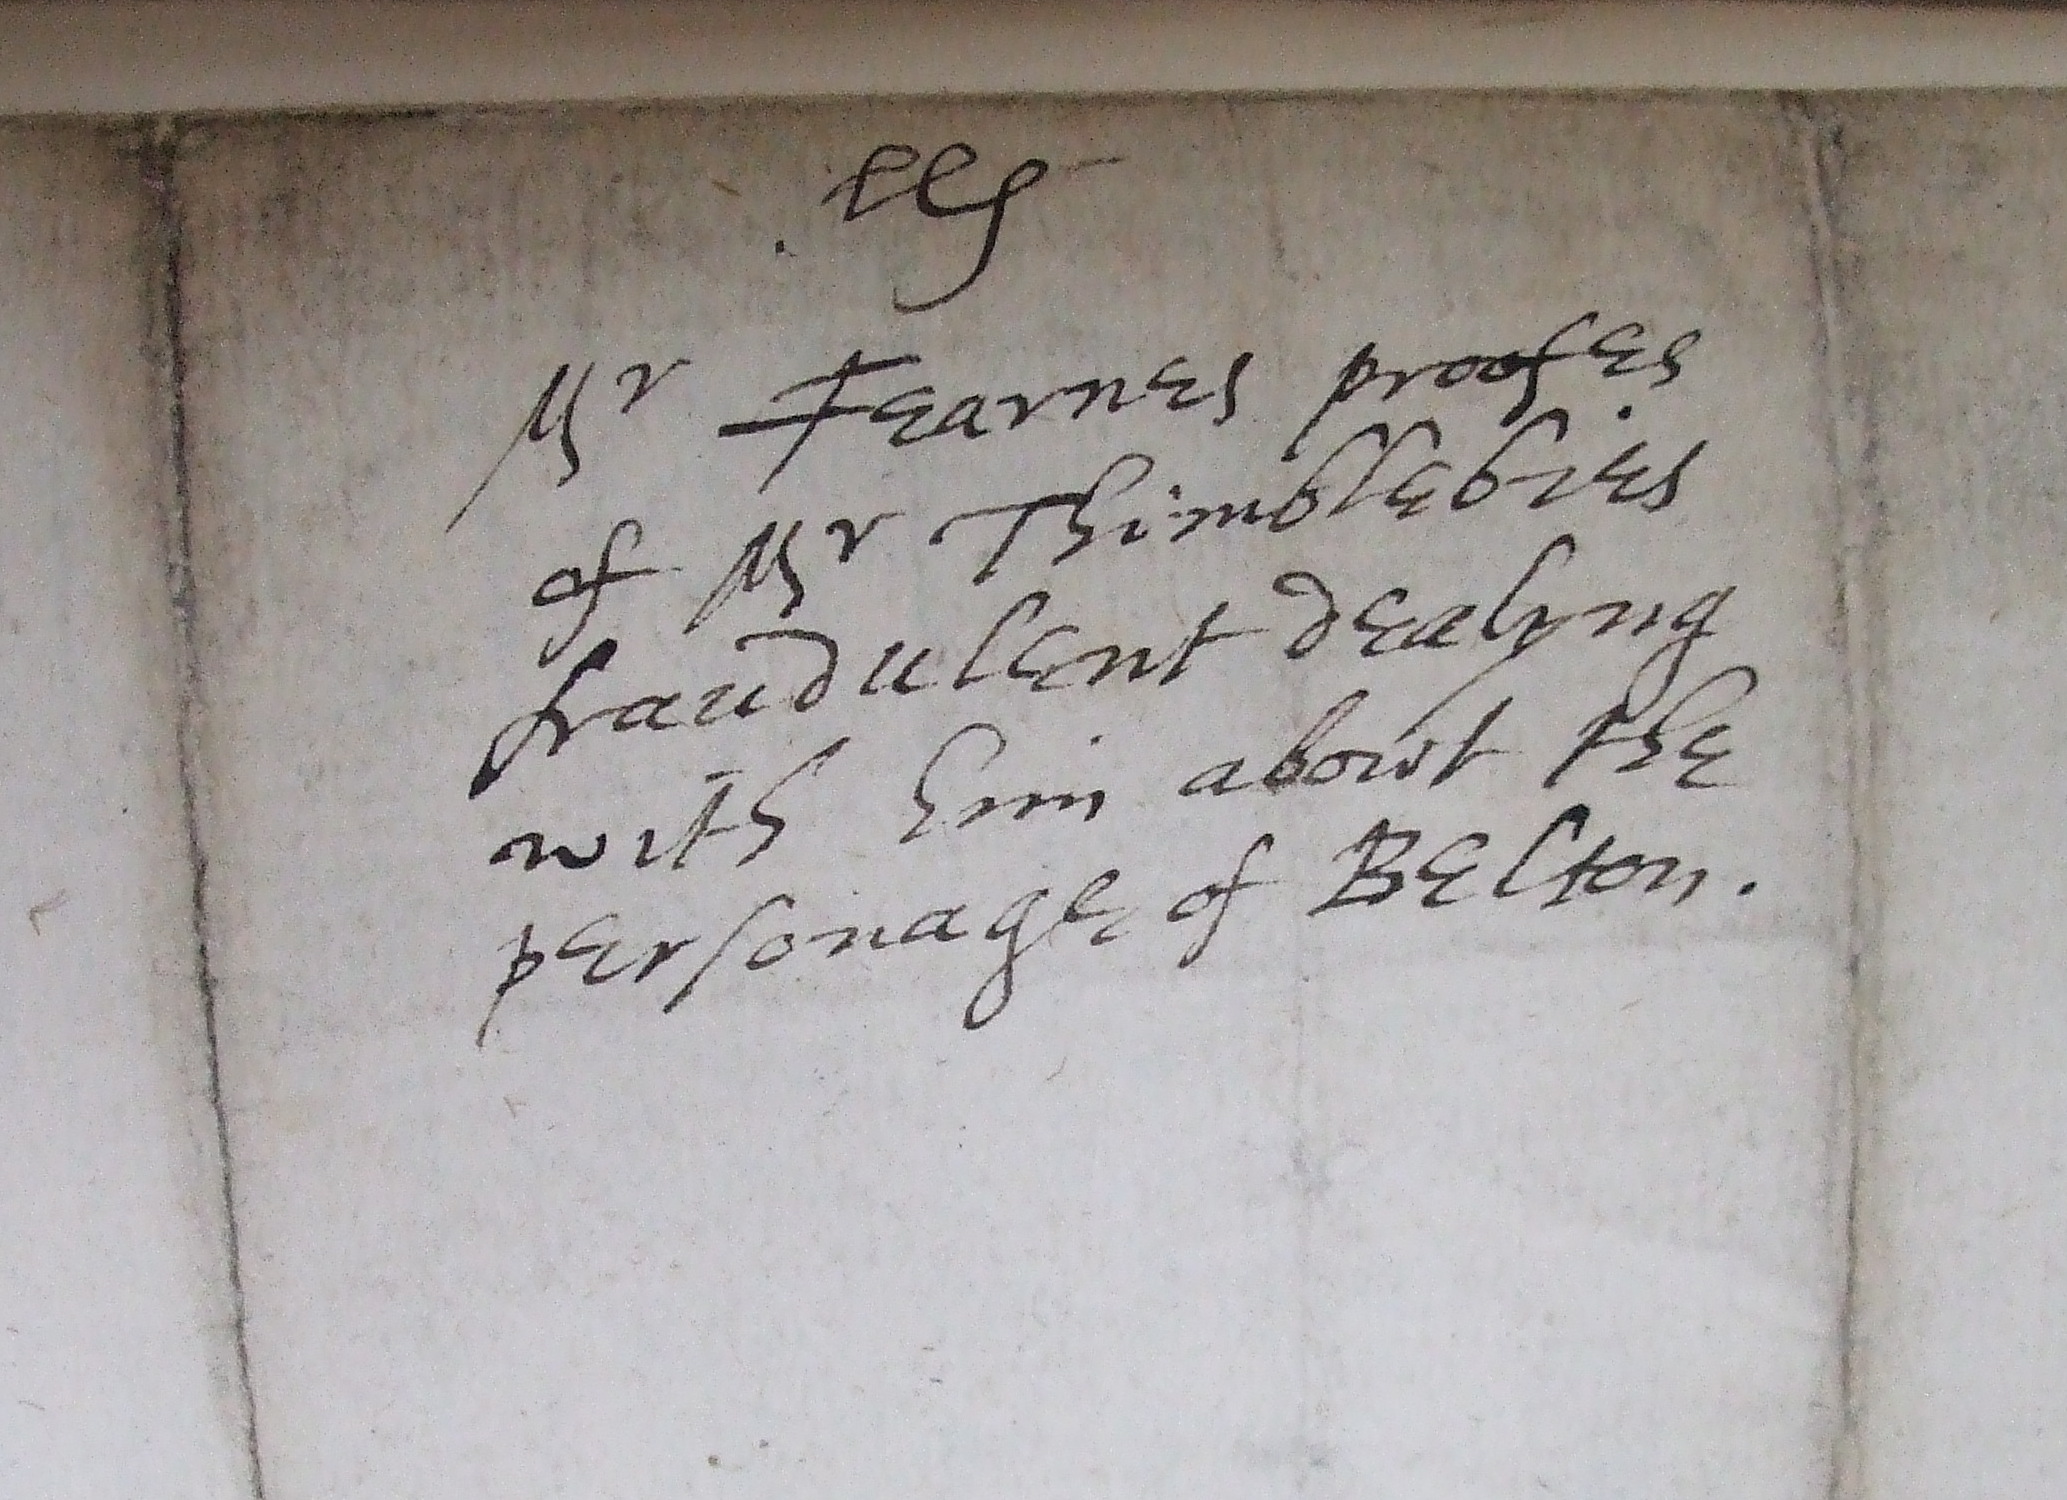 Mr Fearnes proofes
of Mr Thimblebies
fraudulent dealyng
with him about the
personage of Belton.